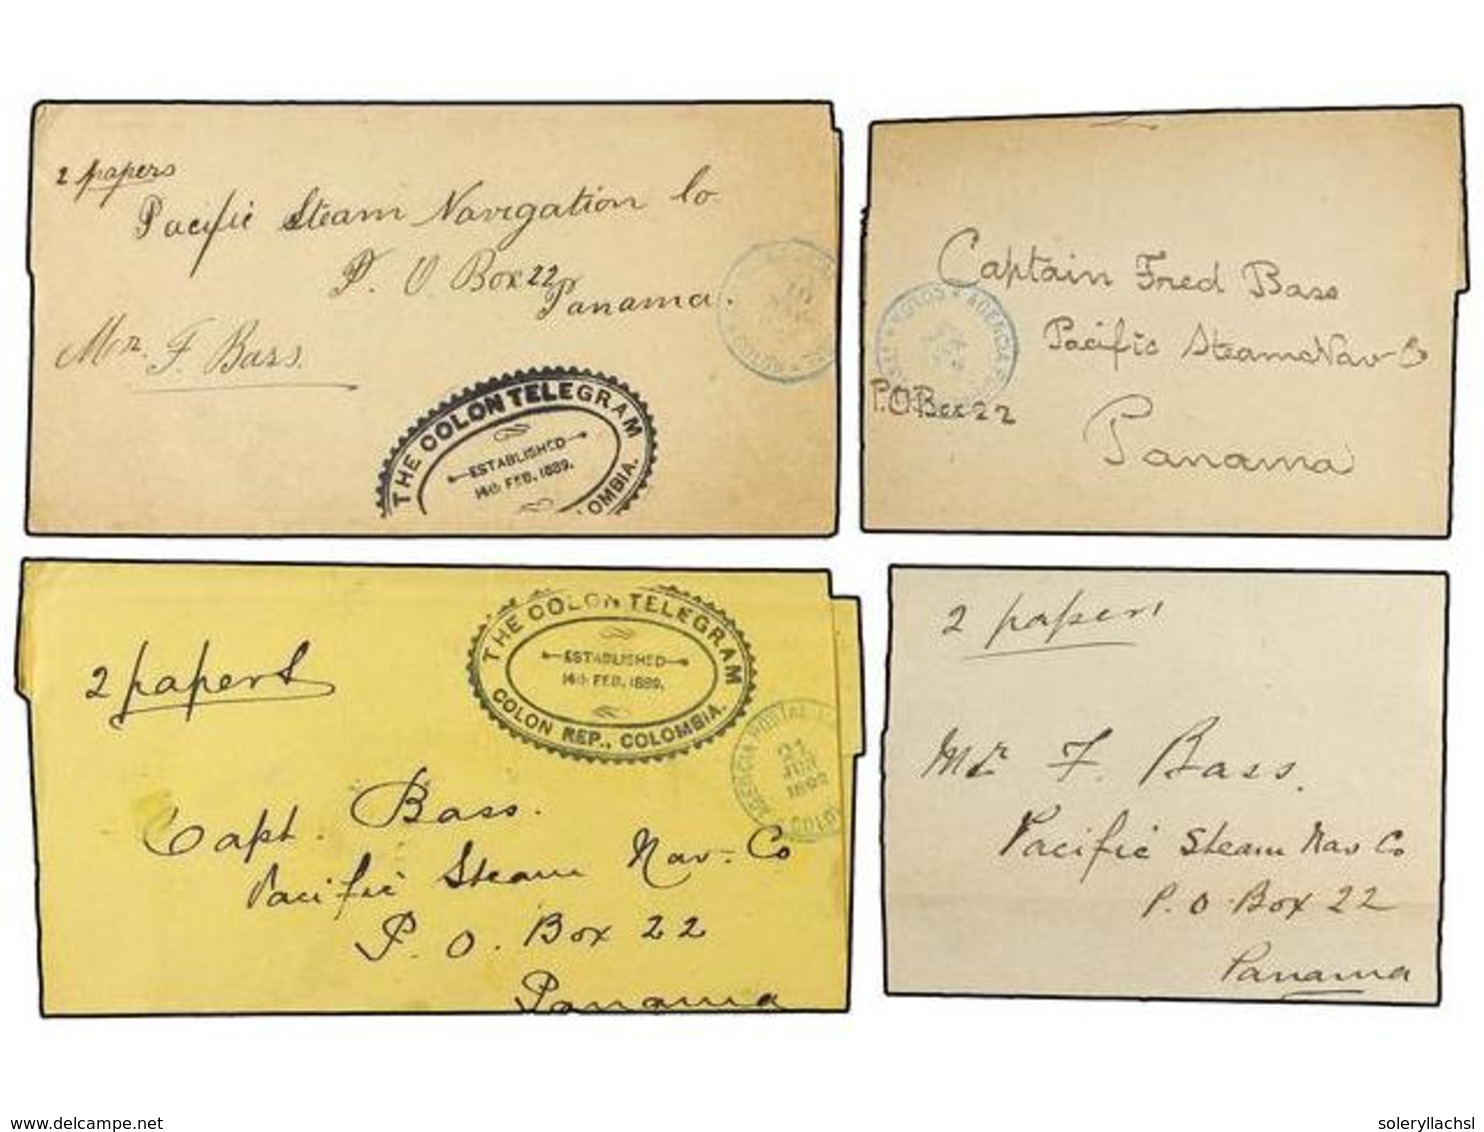 2 papers
Pacific Steam Navigation Co
P. O Box 22
Panama.
Mr. F Bass.
THE COLON TELEGRAM
ESTABLISHED
14th FEB, 1889.
Captain Fred Bass
Pacific Steam Nav Co
P.O Box 22
Panama
AGENCIA
COLON
2 papers
THE COLON TELEGRAM
ESTABLISHED
14th FEB, 1889.
COLON REP., COLOMBIA.
AGENCIA POSTAL
21
JUN
Capt. Bass.
Pacific Steam Nav- Co
P. O. Box 22
Panama
2 papers
Mr F. Bass.
Pacific Steam Nav Co
P. O. Box 22
Panama
www.delcampe.net
soleryllachsl